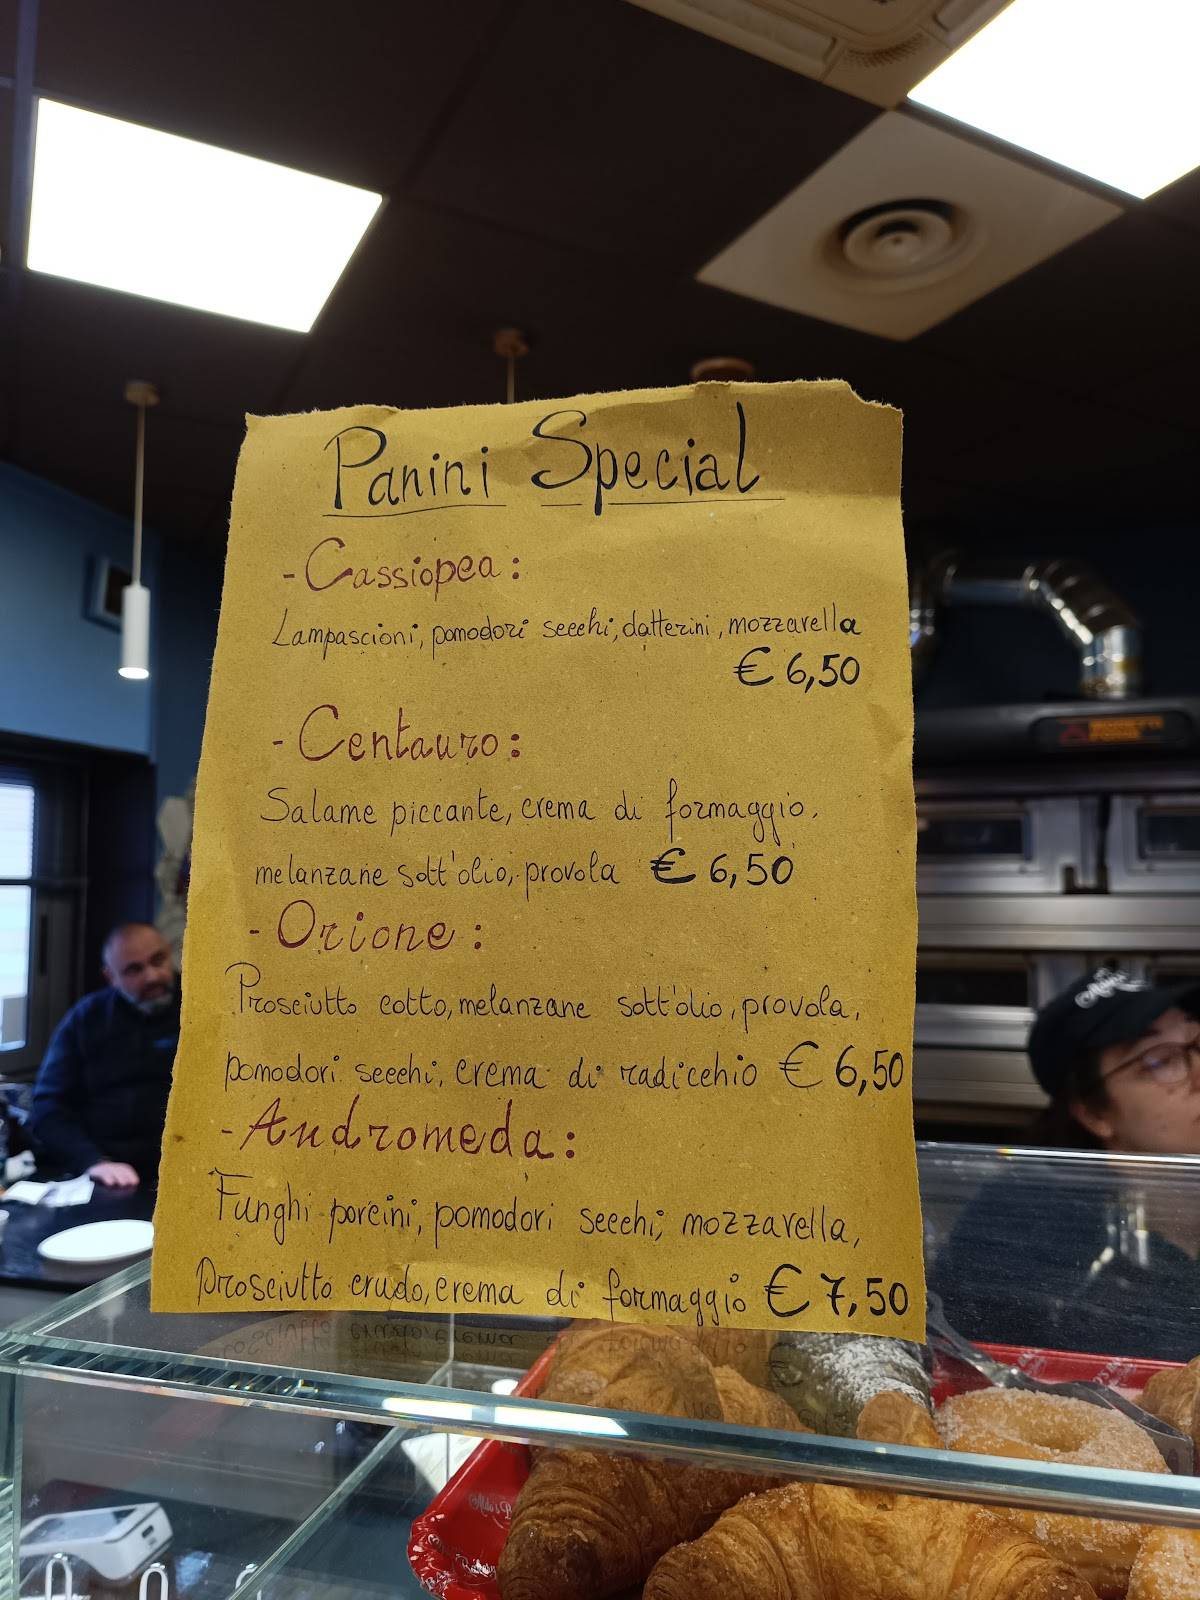 Panini Special
- Cassiopea:
Lampascioni, pomodori secchi, datterini, mozzarella
€ 6,50
- Centauro:
Salame piccante, crema di formaggio,
melanzane sott'olio, provola € 6,50
- Orione:
Prosciutto cotto, melanzane sott'olio, provola,
pomodori secchi, crema di radicchio € 6,50
- Andromeda:
Funghi porcini, pomodori secchi, mozzarella,
Prosciutto crudo, crema di formaggio € 7,50